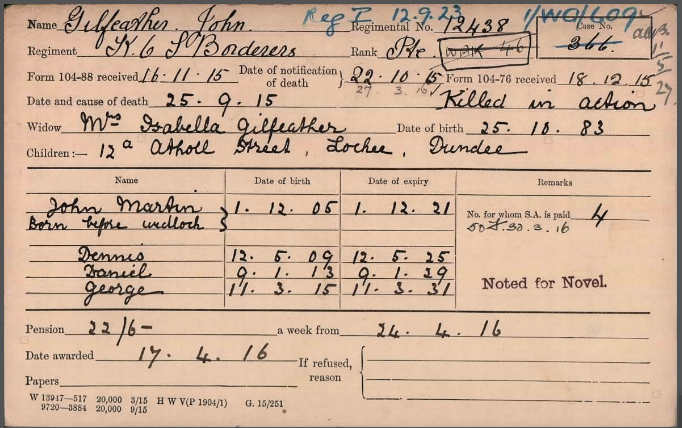 Name Gilfeather. John. Reg I 12.9.23 Regimental No. 12438 1/WO/609 Case No.
Regiment K. O S Borderers Rank Pte 46 366. 11/5/27.
Form 104-88 received 16.11.15 Date of notification of death } 22.10.15 Form 104-76 received 18.12.15
27.3.16
Date and cause of death 25.9.15 Killed in action
Widow Mrs Isabella Gilfeather Date of birth 25.10.83
Children:— 12a Atholl Street, Lochee, Dundee
Name Date of birth Date of expiry Remarks
John Martin 1.12.05 1.12.21
Born before wedlock } No. for whom S.A. is paid 4
30.3.16
Dennis 12.5.09 12.5.25
Daniel 9.1.13 9.1.29 Noted for Novel.
George 11.3.15 11.3.31
Pension 22/6- a week from 24.4.16
Date awarded 17.4.16 If refused, reason {
Papers
W 13947—517 20,000 3/15 H W V(P 1904/1) G. 15/251
9720—3884 20,000 9/15